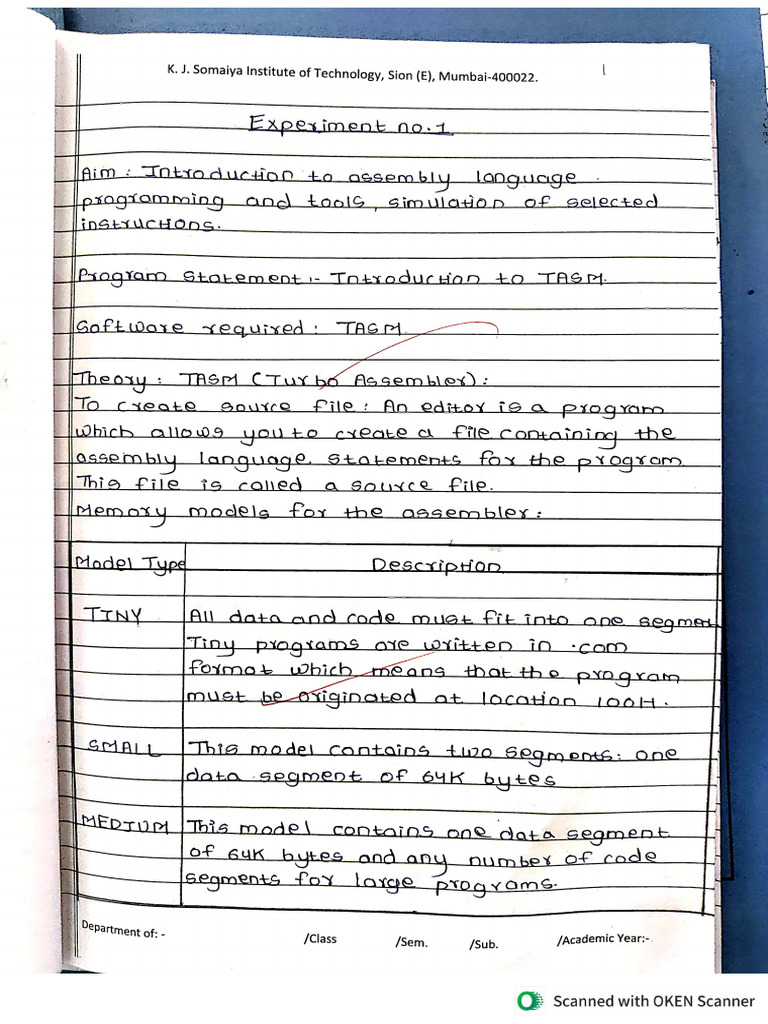 K. J. Somaiya Institute of Technology, Sion (E), Mumbai-400022.
1
Experiment no.1
Aim : Introduction to assembly language
programming and tools, simulation of selected
instructions.
Program Statement :- Introduction to TASM.
Software required : TASM
Theory : TASM (Turbo Assembler) :
To create source file : An editor is a program
which allows you to create a file containing the
assembly language statements for the program
This file is called a source file.
Memory models for the assembler :
Model Type Description
TINY All data and code must fit into one segment
Tiny programs are written in .com
format which means that the program
must be originated at location 100H.
SMALL This model contains two segments: one
data segment of 64K bytes
MEDIUM This model contains one data segment
of 64K bytes and any number of code
segments for large programs.
Department of: - /Class /Sem. /Sub. /Academic Year:-
Scanned with OKEN Scanner